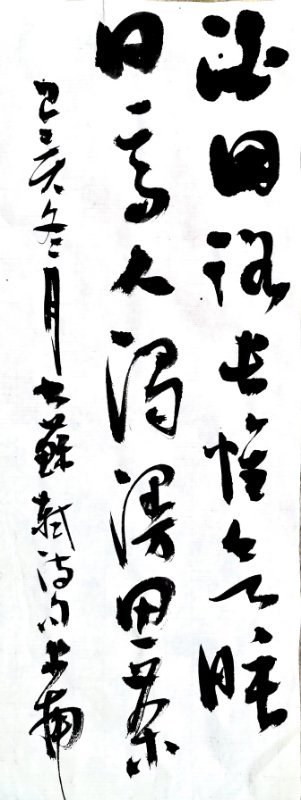 酒困路长惟欲睡
日高人渴漫思茶
己亥冬月书苏轼诗句